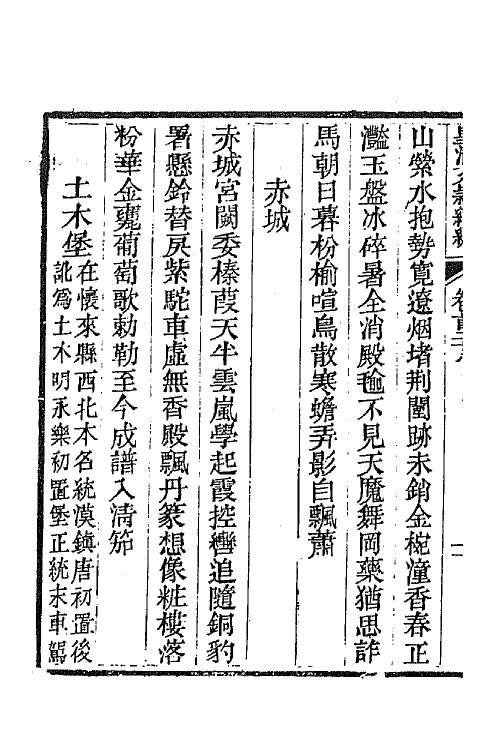 山縈水抱勢寬遼烟堵荆闉跡未銷金椀潼香春正
灩玉盤冰碎暑全消殿𣯶不見天魔舞岡藥猶思詐
馬朝日暮枌榆喧鳥散寒蟾弄影自飄蕭
赤城
赤城宮闕委榛葭天半雲嵐學起霞控轡追隨銅豹
署懸鈴替戾紫駝車虛無香殿飄丹篆想像粧樓落
粉華金甕葡萄歌勅勒至今成譜入清笳
土木堡在懷來縣西北本名統漠鎮唐初置後
訛爲土木明永樂初置堡正統末車駕